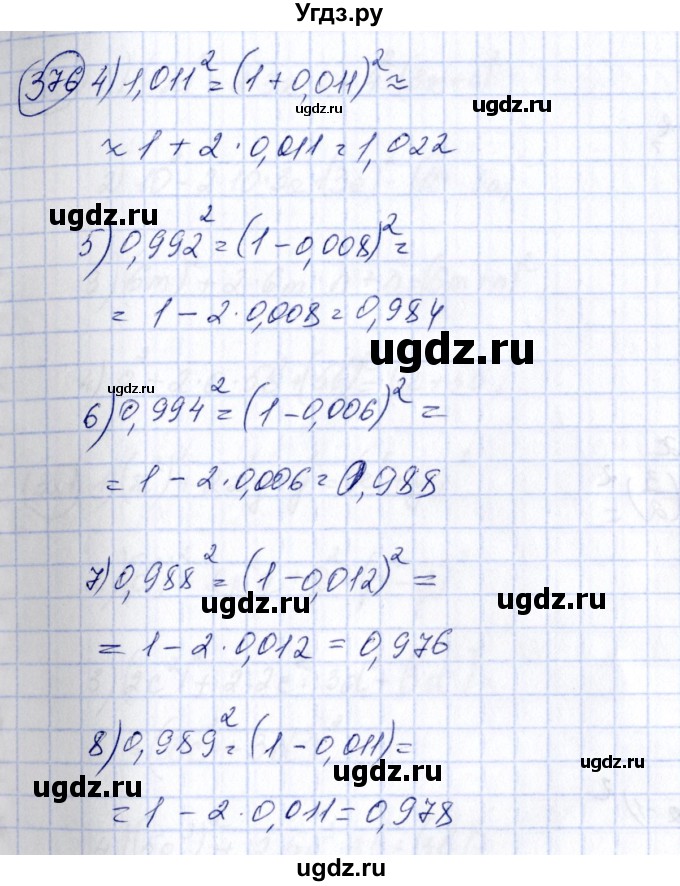 Угдз.ру
376 4) 1,011² = (1 + 0,011)² ≈
ugdz.ru
≈ 1 + 2 · 0,011 = 1,022
ugdz.ru
5) 0,992² = (1 - 0,008)² =
= 1 - 2 · 0,008 = 0,984
ugdz.ru
ugdz.ru
6) 0,994² = (1 - 0,006)² =
= 1 - 2 · 0,006 = 0,988
ugdz.ru
7) 0,988² = (1 - 0,012)² =
ugdz.ru ugdz.ru
= 1 - 2 · 0,012 = 0,976
8) 0,989² = (1 - 0,011) =
ugdz.ru ugdz.ru
= 1 - 2 · 0,011 = 0,978
ugdz.ru